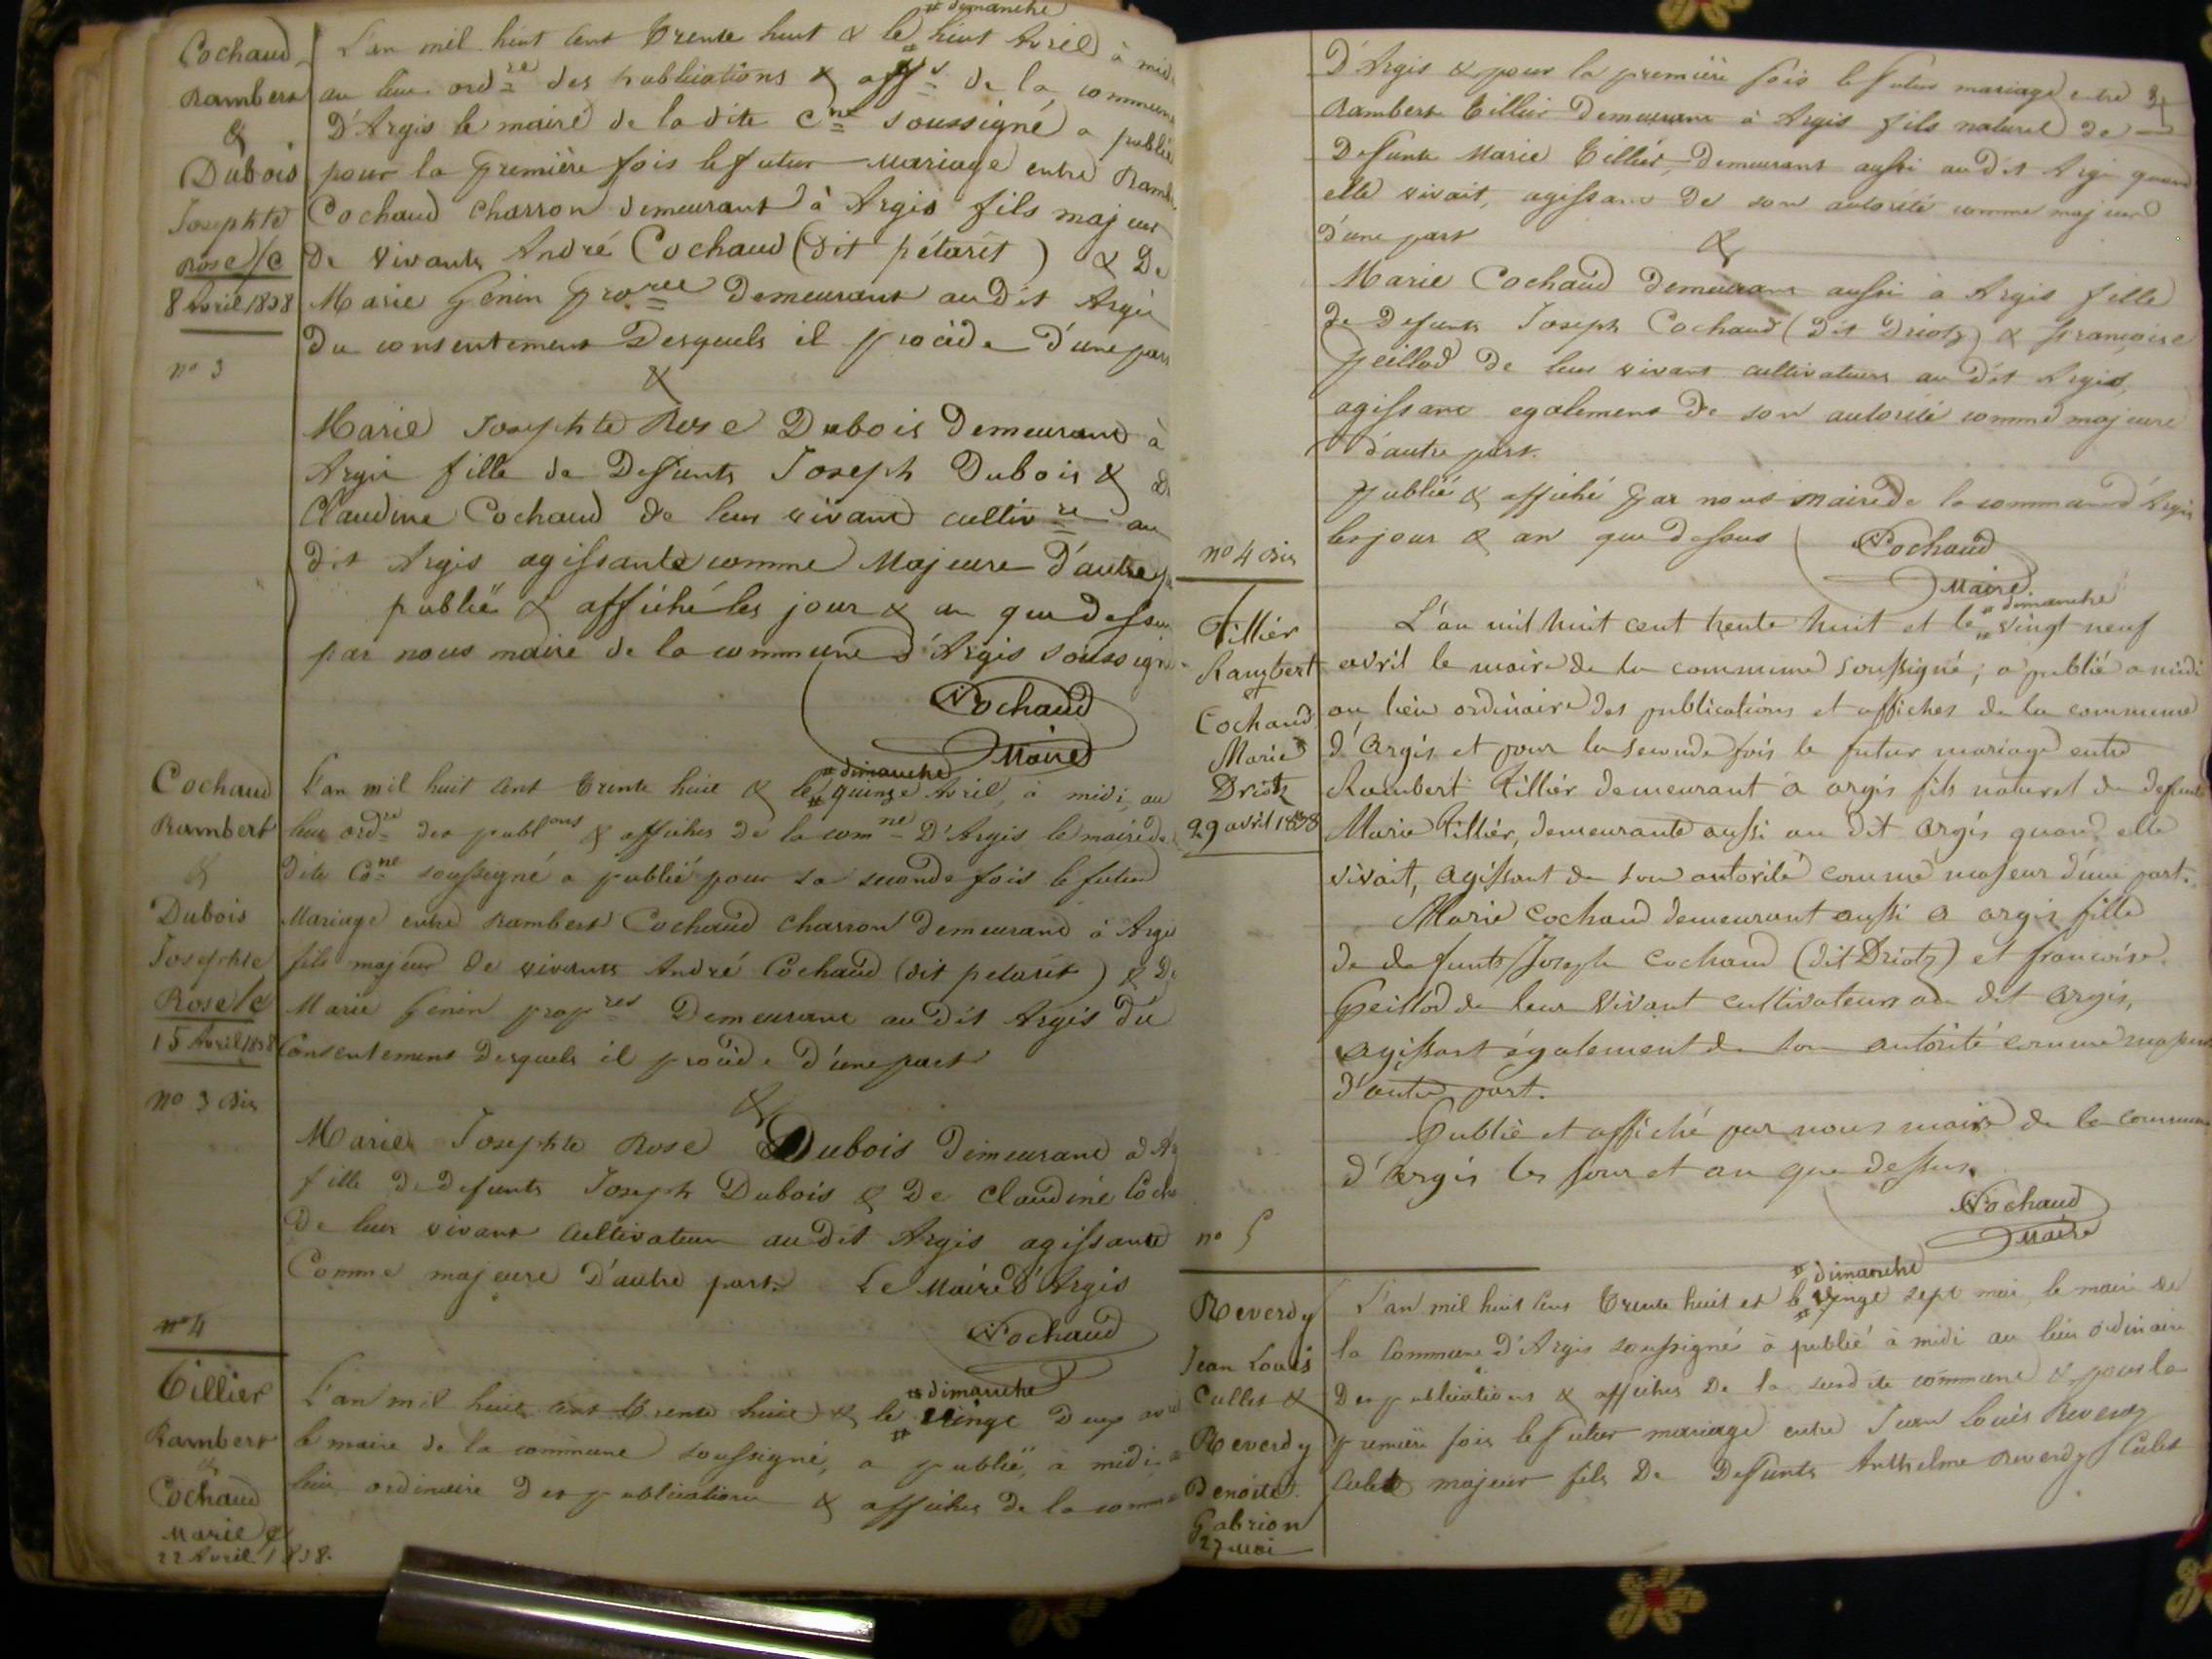 Cochaud
Rambert
&
Dubois
Josephte
Rose /C
8 Avril 1838
no 3
# dimanche
L'an mil huit cent trente huit & le # huit Avril à midi
au lieu ord.re des publications & aff.s de la commune
D'Argis le maire de la dite c.ne soussigné a publié
pour la première fois le futur mariage entre Ramb
Cochaud charron demeurant à Argis fils majeur
de vivants André Cochaud (dit pétarit) & De
Marie Genin pro.res demeurant au dit Argis
du consentement desquels il procède d'une part
&
Marie Josephte Rose Dubois demeurant à
Argis fille de Defunts Joseph Dubois & de
Claudine Cochaud de leur vivant cultiv.rs au
dit Argis agissante comme Majeure d'autre p
publié & affiché les jour & an que dessus
par nous maire de la commune d'Argis soussigné
Cochaud
Maire
Cochaud
Rambert
&
Dubois
Josephte
Rose /C
15 Avril 1838
no 3 bis
# dimanche
L'an mil huit cent trente huit & le # quinze Avril, à midi, au
lieu ord.re des publ.ons & affiches de la com.ne D'Argis le maire de
dite Co.ne soussigné a publié pour la seconde fois le futur
Mariage entre Rambert Cochaud charron demeurant à Argis
fils majeur de vivants André Cochaud (dit petarit) & De
Marie Genin prop.res Demeurant au dit Argis du
Consentement desquels il procède d'une part
&
Marie Josephte Rose Dubois demeurant à A
fille de defunts Joseph Dubois & De Claudine Coch
De leur vivant Cultivateurs au dit Argis agissante
Comme majeure D'autre part. Le Maire d'Argis
Cochaud
no 4
Tillier
Rambert
&
Cochaud
Marie
22 Avril 1838.
# dimanche
L'an mil huit cent trente huit & le # vingt Deux avril
le maire de la commune soussigné, a publié, à midi, a
lieu ordinaire des publications & affiches de la comm
D'Argis & pour la première fois le futur mariage entre
Rambert Tillier Demeurant à Argis fils naturel de
Defunte Marie Tillier, Demeurant aussi au dit Argis quand
elle vivait, agissant De son autorité comme majeur
d'une part
&
Marie Cochaud Demeurant aussi à Argis fille
de Defunts Joseph Cochaud (dit Driotz) & francoise
Peillod de leur vivant cultivateurs au dit Argis,
agissant egalement de son autorité comme majeure
D'autre part.
Publié & affiché par nous maire de la commune d'Argis
les jour & an que dessus
Cochaud
Maire
no 4 bis
Tillier
Rambert
&
Cochaud
Marie
Driotz
29 avril 1838
# dimanche
L'an mil huit cent trente huit et le # vingt neuf
avril le maire de la commune soussigné; a publié a midi
au lieu ordinaire des publications et affiches de la commune
d'Argis et pour la seconde fois le futur mariage entre
Rambert Tillier demeurant à argis fils naturel de defunte
Marie Tillier, demeurante aussi au dit Argis quand elle
vivait, agissant de son autorité comme majeur d'une part.
Marie Cochaud demeurant aussi a argis fille
de defunts Joseph Cochaud (dit Driotz) et francoise
Peillod de leur vivant cultivateurs au dit Argis,
agissant également de son autorité comme majeure
d'autre part.
Publié et affiché par nous maire de la commune
d'Argis les jour et an que dessus.
Cochaud
Maire
no 5
Reverdy
Jean Louis
Cullet &
Reverdy
Benoite
Gabrion
27 Mai
# dimanche
L'an mil huit cent trente huit et le # vingt sept mai le maire de
la Commune d'Argis soussigné à publié à midi au lieu ordinaire
Des publications & affiches De la susdite commune & pour la
première fois le futur mariage entre Jean Louis Reverdy
Culet majeur fils De Defunts Anthelme Reverdy Culet